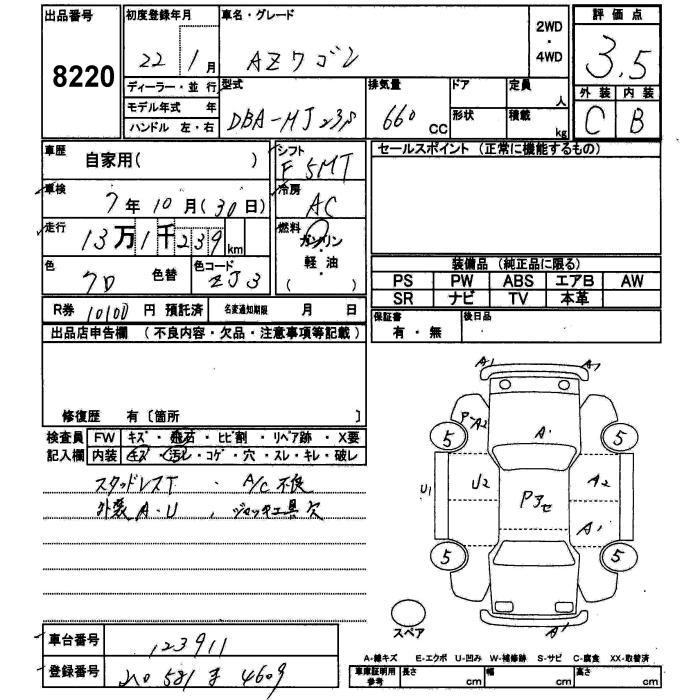 出品番号
8220
初度登録年月
22 1月
車名・グレード
AZワゴン
2WD
・
4WD
評価点
3.5
外装 内装
C B
ディーラー・並行
モデル年式 年
ハンドル 左・右
型式
DBA-MJ23S
排気量
660 CC
ドア
形状
定員
人
積載
kg
車歴
自家用( )
シフト
F 5MT
セールスポイント (正常に機能するもの)
車検
7年10月(30日)
冷房
AC
走行
13万1千239km
燃料
ガソリン
・
軽・油
( )
色
クロ 色替
色コード
ZJ3
装備品 (純正品に限る)
PS PW ABS エアB AW
SR ナビ TV 本革
R券 10100 円 預託済
名変通知期限 月 日
保証書
有・無
後日品
出品店申告欄 (不良内容・欠品・注意事項等記載)
修復歴 有〔箇所 〕
検査員 FW キズ・飛石・ヒビ割・リペア跡・X要
記入欄 内装 キズ・汚レ・コゲ・穴・スレ・キレ・破レ
スタッドレスT ・ A/C不良
外装 A・U , ジャッキ工具欠
A1
P-A2
5 5
A1
U1 U2 Pアセ A2
A1
5 5
A1
スペア
車台番号 123911
登録番号
4609
A-線キズ E-エクボ U-凹み W-補修跡 S-サビ C-腐食 XX-取替済
車庫証明用
参考
長さ cm 幅 cm 高さ cm